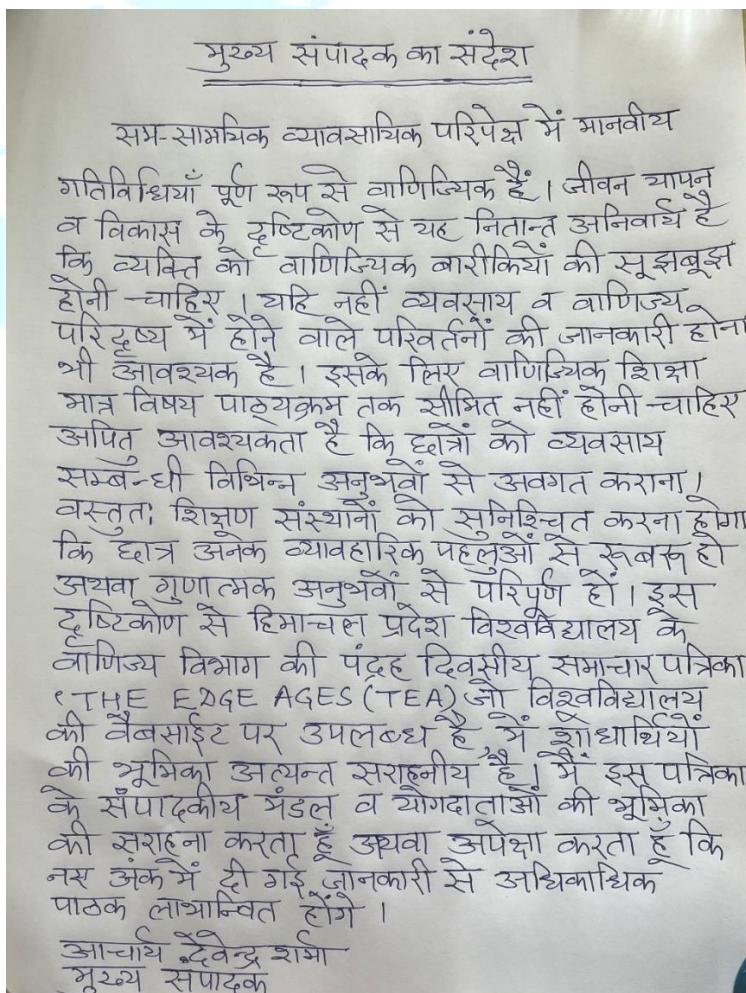 मुख्य संपादक का संदेश
सम-सामयिक व्यावसायिक परिपेक्ष में मानवीय
गतिविधियाँ पूर्ण रूप से वाणिज्यिक हैं । जीवन यापन
व विकास के दृष्टिकोण से यह नितान्त अनिवार्य है
कि व्यक्ति को वाणिज्यिक बारीकियों की सूझबूझ
होनी चाहिए । यहि नहीं व्यवसाय व वाणिज्य
परिदृष्य में होने वाले परिवर्तनों की जानकारी होना
भी आवश्यक है । इसके लिए वाणिज्यिक शिक्षा
मात्र विषय पाठ्यक्रम तक सीमित नहीं होनी चाहिए
अपितु आवश्यकता है कि छात्रों को व्यवसाय
सम्बन्धी विभिन्न अनुभवों से अवगत कराना ।
वस्तुतः शिक्षण संस्थानों को सुनिश्चित करना होगा
कि छात्र अनेक व्यावहारिक पहलुओं से रूबरू हो
अथवा गुणात्मक अनुभवों से परिपूर्ण हों । इस
दृष्टिकोण से हिमाचल प्रदेश विश्वविद्यालय के
वाणिज्य विभाग की पंद्रह दिवसीय समाचार पत्रिका
'THE EDGE AGES (TEA) जो विश्वविद्यालय
की वैबसाईट पर उपलब्ध है, में शोधार्थियों
की भूमिका अत्यन्त सराहनीय है । मैं इस पत्रिका
के संपादकीय मंडल व योगदाताओं की भूमिका
की सराहना करता हूँ अथवा अपेक्षा करता हूँ कि
नए अंक में दी गई जानकारी से अधिकाधिक
पाठक लाभान्वित होंगे ।
आचार्य देवेन्द्र शर्मा
मुख्य संपादक